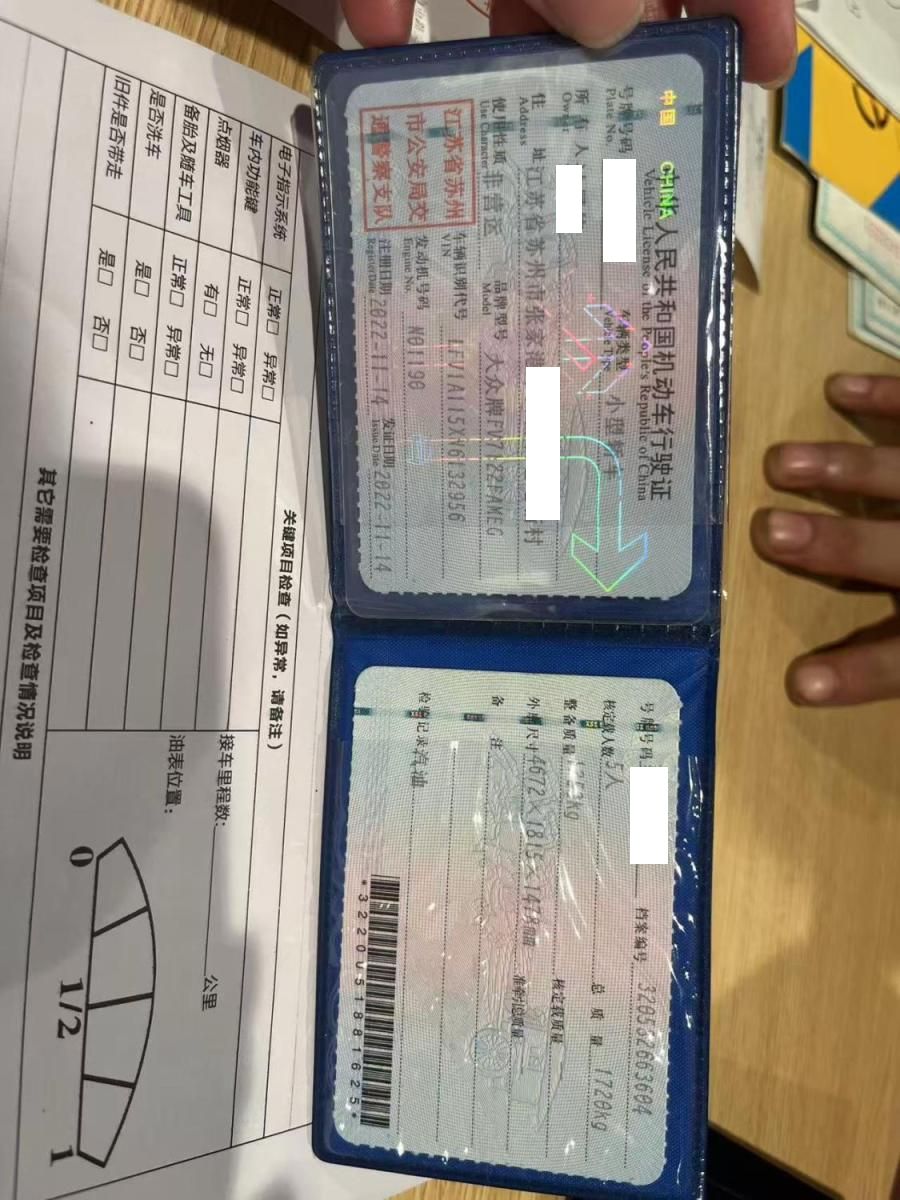 中国 CHINA
中华人民共和国机动车行驶证
Vehicle License of the People's Republic of China
号牌号码
Plate No.
车辆类型
Vehicle Type
小型轿车
所有人
Owner
住址 江苏省苏州市张家港
村
Address
使用性质 非营运
Use Character
品牌型号 大众牌FV7122FAMEG
Model
江苏省苏州
市公安局交
通警察支队
车辆识别代号
VIN
发动机号码 N01190
Engine No.
注册日期 2022-11-14
Register Date
发证日期 2022-11-14
Issue Date
号牌号码
档案编号
核定载人数 5人
总质量 1720kg
整备质量
核定载质量
外廓尺寸 4672×1815×1478mm
准牵引总质量
备注
检验记录 汽油
*3220051881625*
关键项目检查（如异常，请备注）
电子指示系统 正常□ 异常□
车内功能键 正常□ 异常□
点烟器 有□ 无□
备胎及随车工具 正常□ 异常□
是否洗车 是□ 否□
旧件是否带走 是□ 否□
接车里程数： 公里
油表位置：
0 1/2 1
其它需要检查项目及检查情况说明